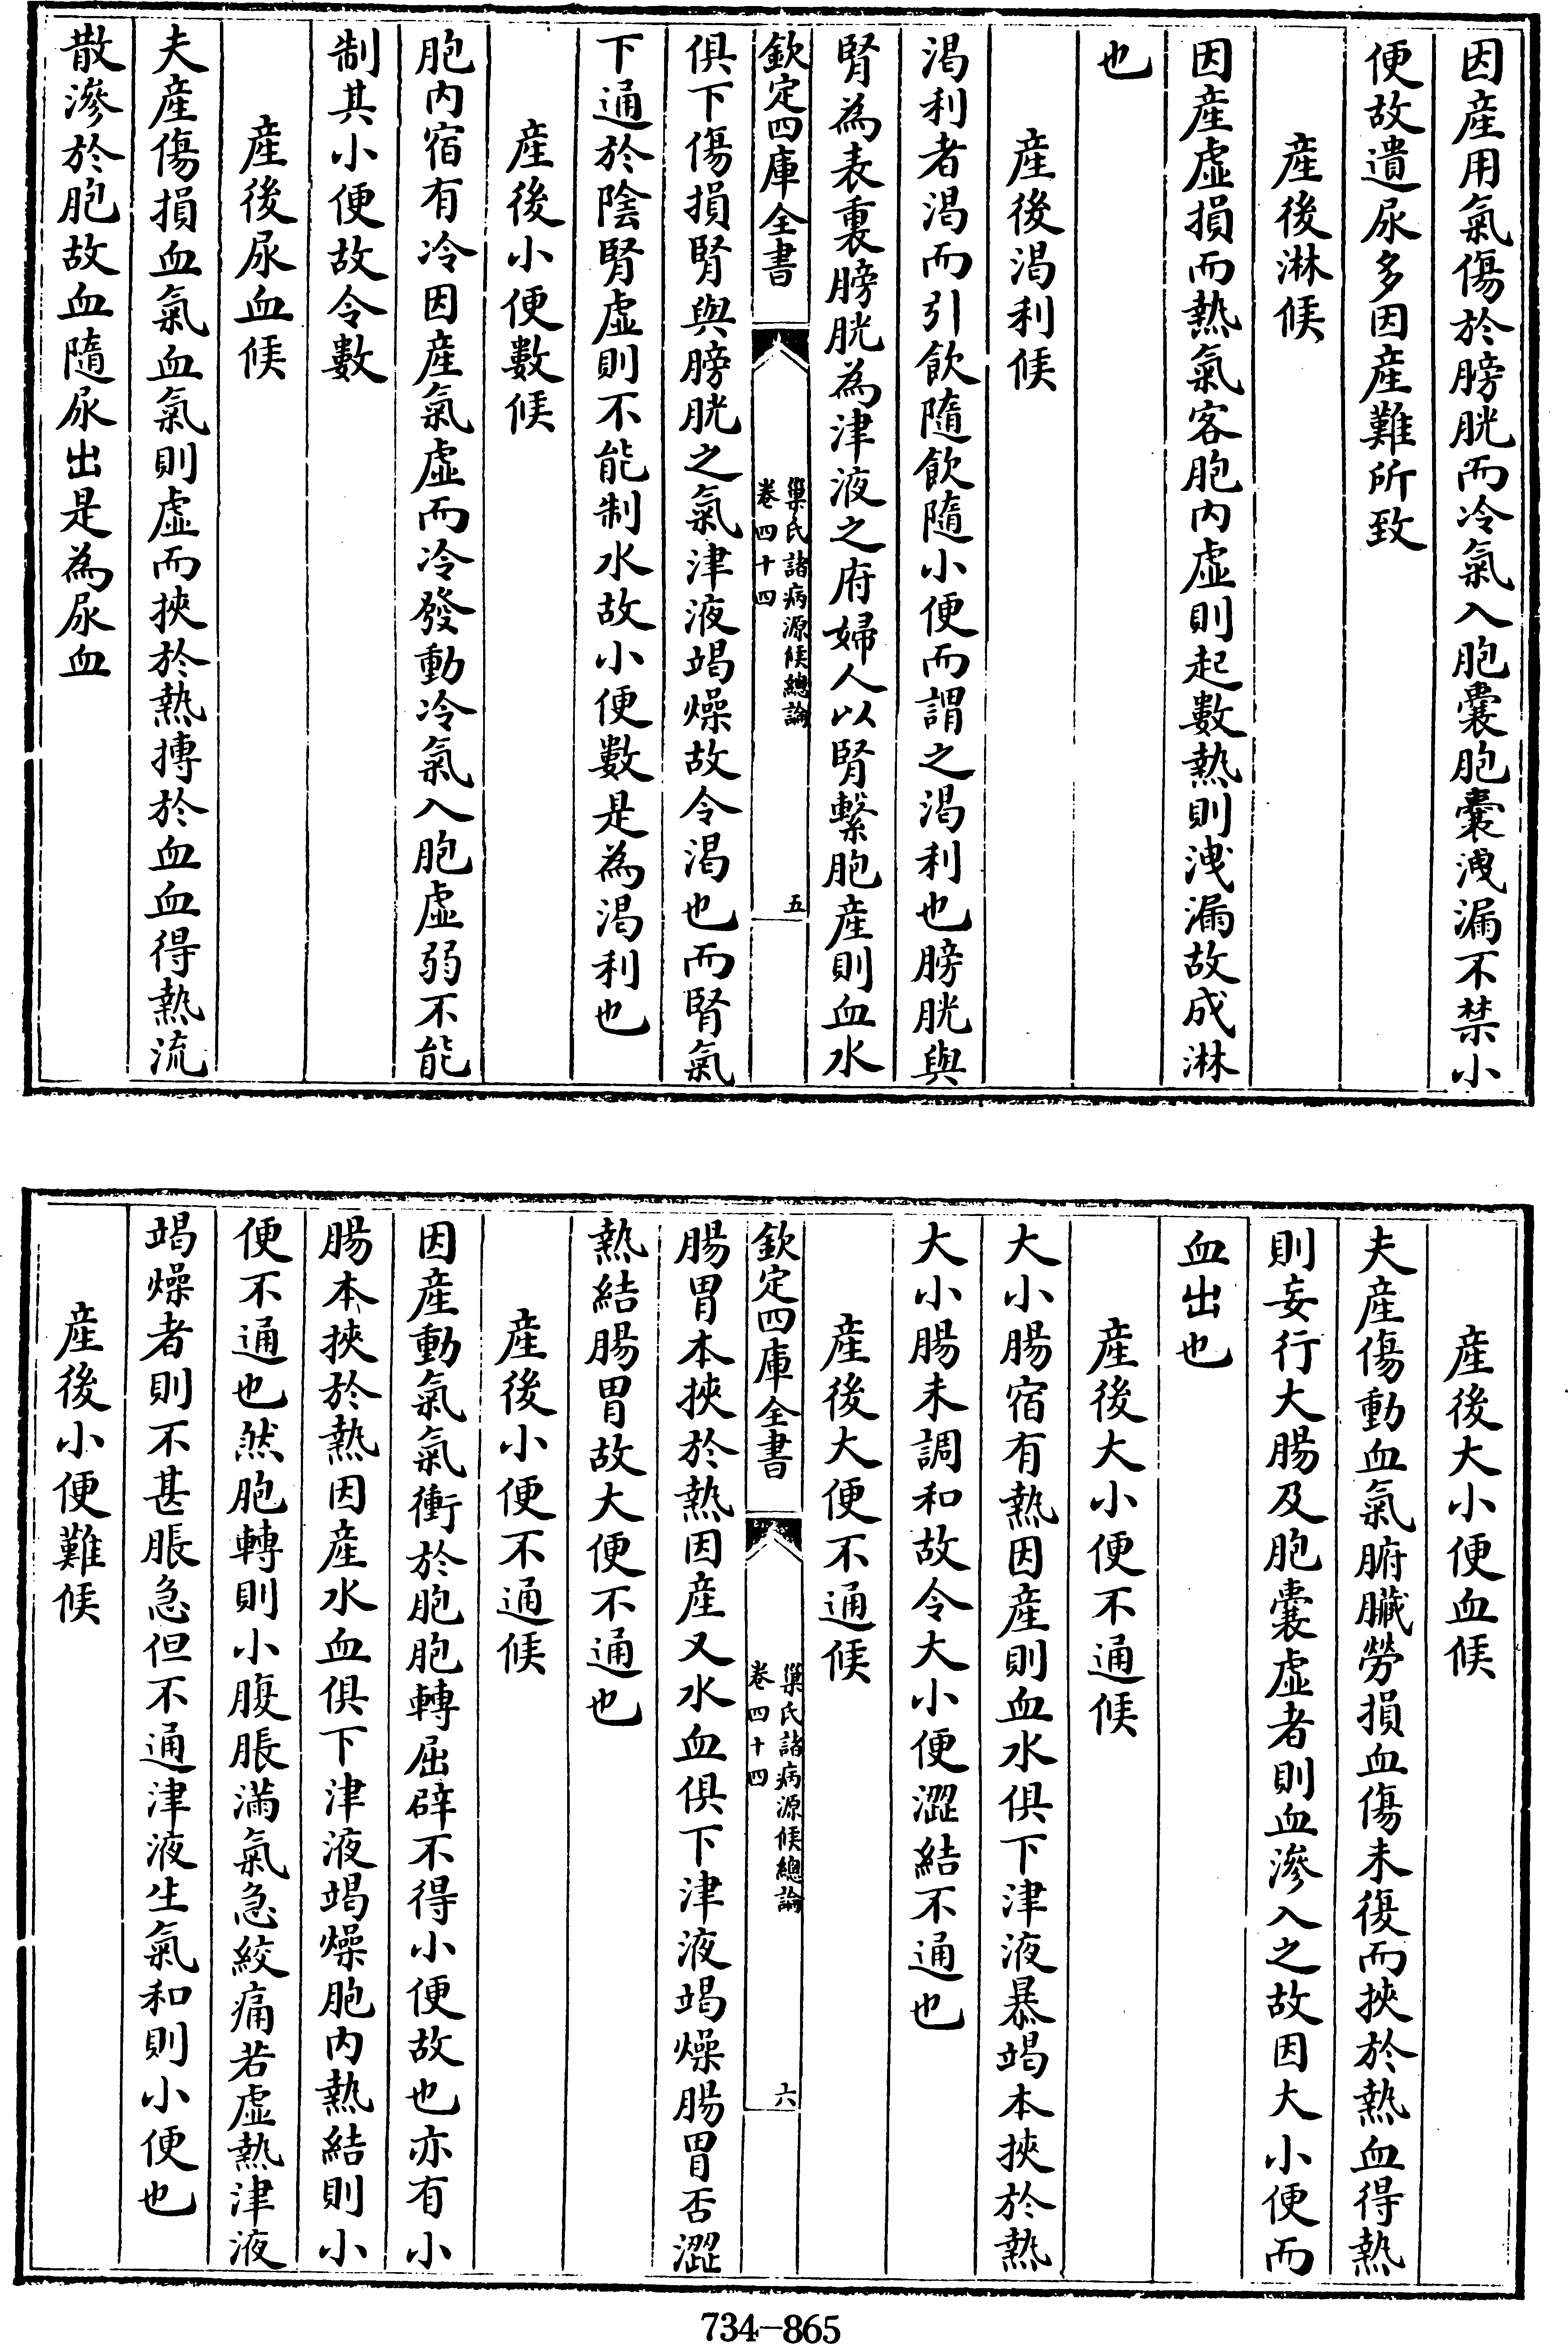 因産用氣傷於膀胱而冷氣入胞囊胞囊洩漏不禁小
便故遺尿多因産難所致
産後淋候
因産虚損而熱氣客胞内虚則起數熱則洩漏故成淋
也
産後渴利候
渴利者渴而引飲隨飲隨小便而謂之渴利也膀胱與
腎為表裏膀胱為津液之府婦人以腎繫胞産則血水
欽定四庫全書
巢氏諸病源候總論
卷四十四
五
俱下傷損腎與膀胱之氣津液竭燥故令渴也而腎氣
下通於陰腎虚則不能制水故小便數是為渴利也
産後小便數候
胞内宿有冷因産氣虚而冷發動冷氣入胞虚弱不能
制其小便故令數
産後尿血候
夫産傷損血氣血氣則虚而挾於熱搏於血血得熱流
散滲於胞故血隨尿出是為尿血
産後大小便血候
夫産傷動血氣腑臟勞損血傷未復而挾於熱血得熱
則妄行大腸及胞囊虚者則血滲入之故因大小便而
血出也
産後大小便不通候
大小腸宿有熱因産則血水俱下津液暴竭本挾於熱
大小腸未調和故令大小便澀結不通也
産後大便不通候
欽定四庫全書
巢氏諸病源候總論
卷四十四
六
腸胃本挾於熱因産又水血俱下津液竭燥腸胃否澀
熱結腸胃故大便不通也
産後小便不通候
因産動氣氣衝於胞胞轉屈辟不得小便故也亦有小
腸本挾於熱因産水血俱下津液竭燥胞内熱結則小
便不通也然胞轉則小腹脹滿氣急絞痛若虚熱津液
竭燥者則不甚脹急但不通津液生氣和則小便也
産後小便難候
734-865